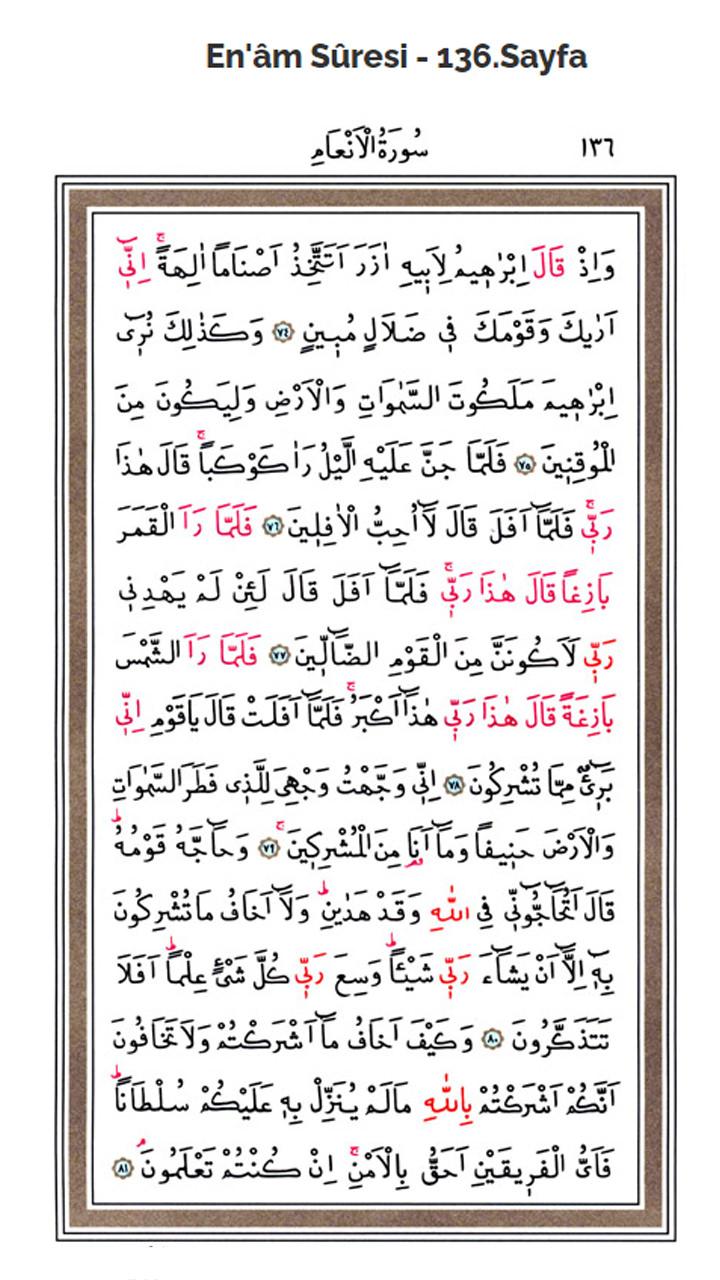 En'âm Sûresi - 136.Sayfa
سُورَةُ الْاَنْعَامِ ١٣٦
وَاِذْ قَالَ اِبْرٰه۪يمُ لِاَب۪يهِ اٰزَرَ اَتَتَّخِذُ اَصْنَاماً اٰلِهَةًۚ اِنّ۪ٓي
اَرٰيكَ وَقَوْمَكَ ف۪ي ضَلَالٍ مُب۪ينٍ ﴿٧٤﴾ وَكَذٰلِكَ نُر۪ٓي
اِبْرٰه۪يمَ مَلَكُوتَ السَّمٰوَاتِ وَالْاَرْضِ وَلِيَكُونَ مِنَ
الْمُوقِن۪ينَ ﴿٧٥﴾ فَلَمَّا جَنَّ عَلَيْهِ الَّيْلُ رَاٰ كَوْكَباًۚ قَالَ هٰذَا
رَبّ۪يۚ فَلَمَّٓا اَفَلَ قَالَ لَٓا اُحِبُّ الْاٰفِل۪ينَ ﴿٧٦﴾ فَلَمَّا رَاَ الْقَمَرَ
بَازِغاً قَالَ هٰذَا رَبّ۪يۚ فَلَمَّٓا اَفَلَ قَالَ لَئِنْ لَمْ يَهْدِن۪ي
رَبّ۪ي لَاَكُونَنَّ مِنَ الْقَوْمِ الضَّٓالّ۪ينَ ﴿٧٧﴾ فَلَمَّا رَاَ الشَّمْسَ
بَازِغَةً قَالَ هٰذَا رَبّ۪ي هٰذَٓا اَكْبَرُۚ فَلَمَّٓا اَفَلَتْ قَالَ يَاقَوْمِ اِنّ۪ي
بَر۪ٓيءٌ مِمَّا تُشْرِكُونَ ﴿٧٨﴾ اِنّ۪ي وَجَّهْتُ وَجْهِيَ لِلَّذ۪ي فَطَرَ السَّمٰوَاتِ
وَالْاَرْضَ حَن۪يفاً وَمَٓا اَنَا۬ مِنَ الْمُشْرِك۪ينَۚ ﴿٧٩﴾ وَحَٓاجَّهُ قَوْمُهُۜ
قَالَ اَتُحَٓاجُّٓونّ۪ي فِي اللّٰهِ وَقَدْ هَدٰينِۜ وَلَٓا اَخَافُ مَا تُشْرِكُونَ
بِه۪ٓ اِلَّٓا اَنْ يَشَٓاءَ رَبّ۪ي شَيْـٔاًۜ وَسِعَ رَبّ۪ي كُلَّ شَيْءٍ عِلْماًۜ اَفَلَا
تَتَذَكَّرُونَ ﴿٨٠﴾ وَكَيْفَ اَخَافُ مَٓا اَشْرَكْتُمْ وَلَا تَخَافُونَ
اَنَّكُمْ اَشْرَكْتُمْ بِاللّٰهِ مَا لَمْ يُنَزِّلْ بِه۪ عَلَيْكُمْ سُلْطَاناًۜ
فَاَيُّ الْفَر۪يقَيْنِ اَحَقُّ بِالْاَمْنِۚ اِنْ كُنْتُمْ تَعْلَمُونَۢ ﴿٨١﴾